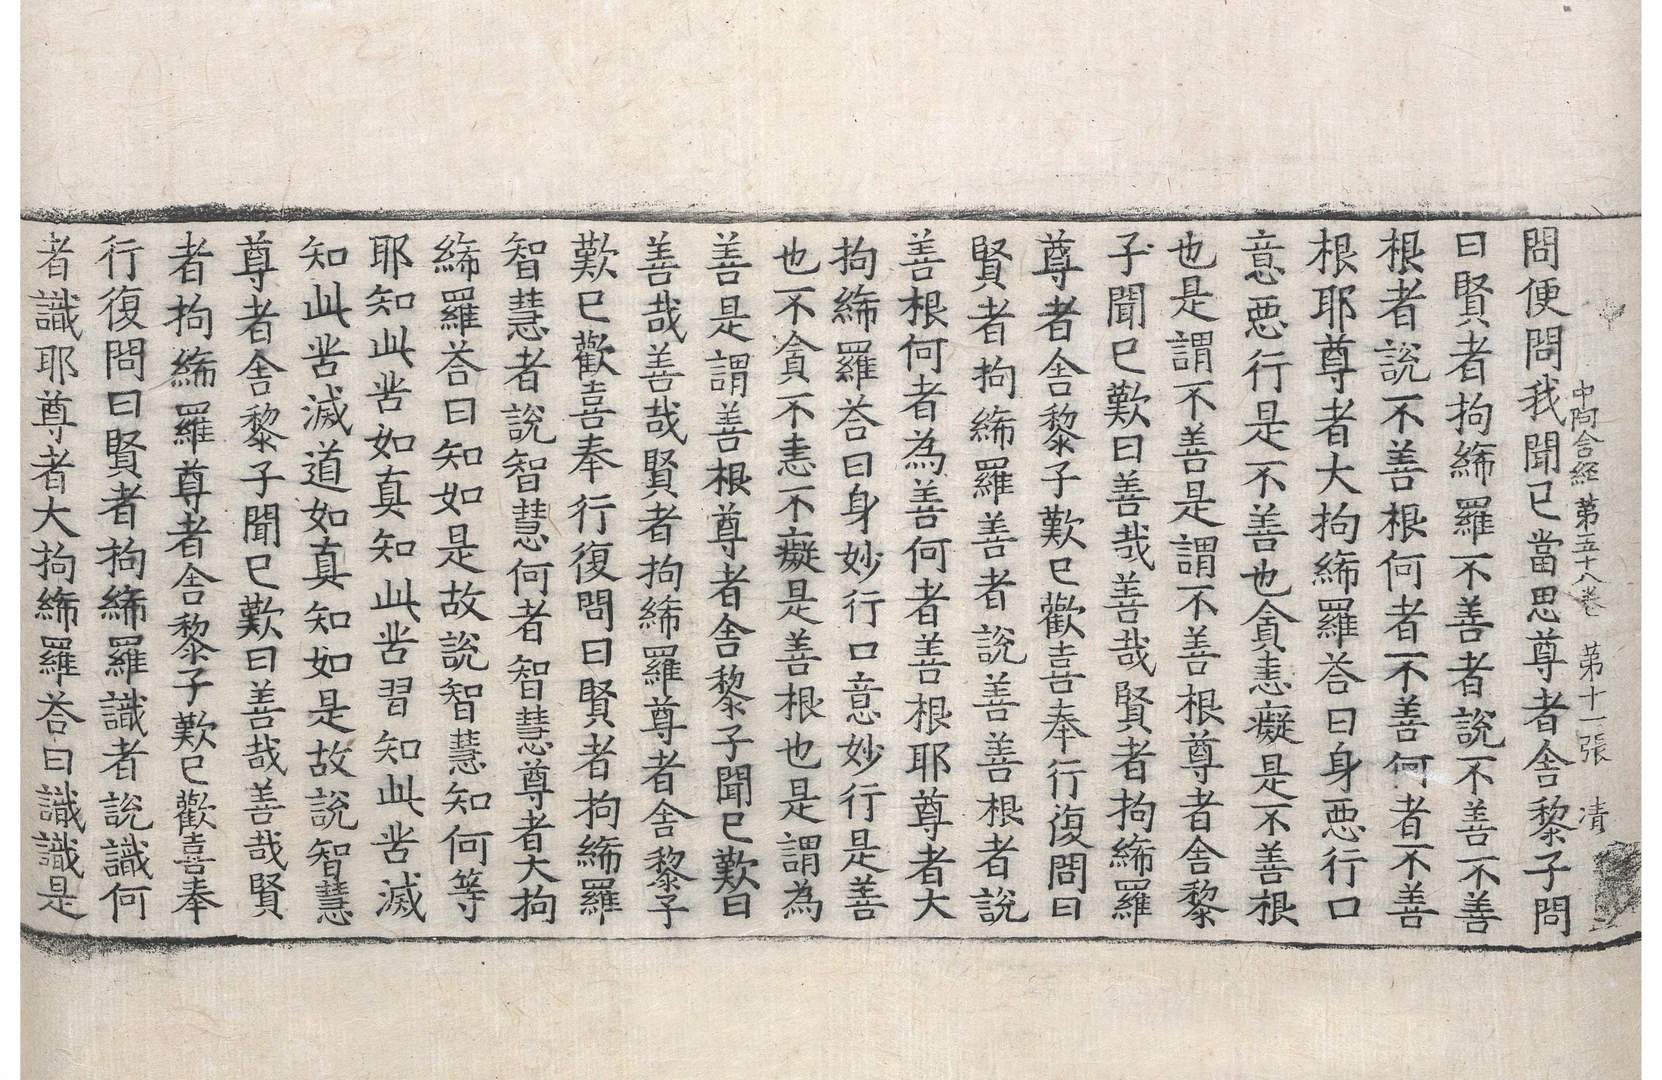 中阿含経第五十八卷 第十一張 清
問便問我聞已當思尊者舍黎子問
曰賢者拘絺羅不善者說不善不善
根者說不善根何者不善何者不善
根耶尊者大拘絺羅荅曰身惡行口
意惡行是不善也貪恚癡是不善根
也是謂不善是謂不善根尊者舍黎
子聞已歎曰善哉善哉賢者拘絺羅
尊者舍黎子歎已歡喜奉行復問曰
賢者拘絺羅善者說善善根者說
善根何者為善何者善根耶尊者大
拘絺羅荅曰身妙行口意妙行是善
也不貪不恚不癡是善根也是謂為
善是謂善根尊者舍黎子聞已歎曰
善哉善哉賢者拘絺羅尊者舍黎子
歎已歡喜奉行復問曰賢者拘絺羅
智慧者說智慧何者智慧尊者大拘
絺羅荅曰知如是故說智慧知何等
耶知此苦如真知此苦習知此苦滅
知此苦滅道如真知如是故說智慧
尊者舍黎子聞已歎曰善哉善哉賢
者拘絺羅尊者舍黎子歎已歡喜奉
行復問曰賢者拘絺羅識者說識何
者識耶尊者大拘絺羅荅曰識識是